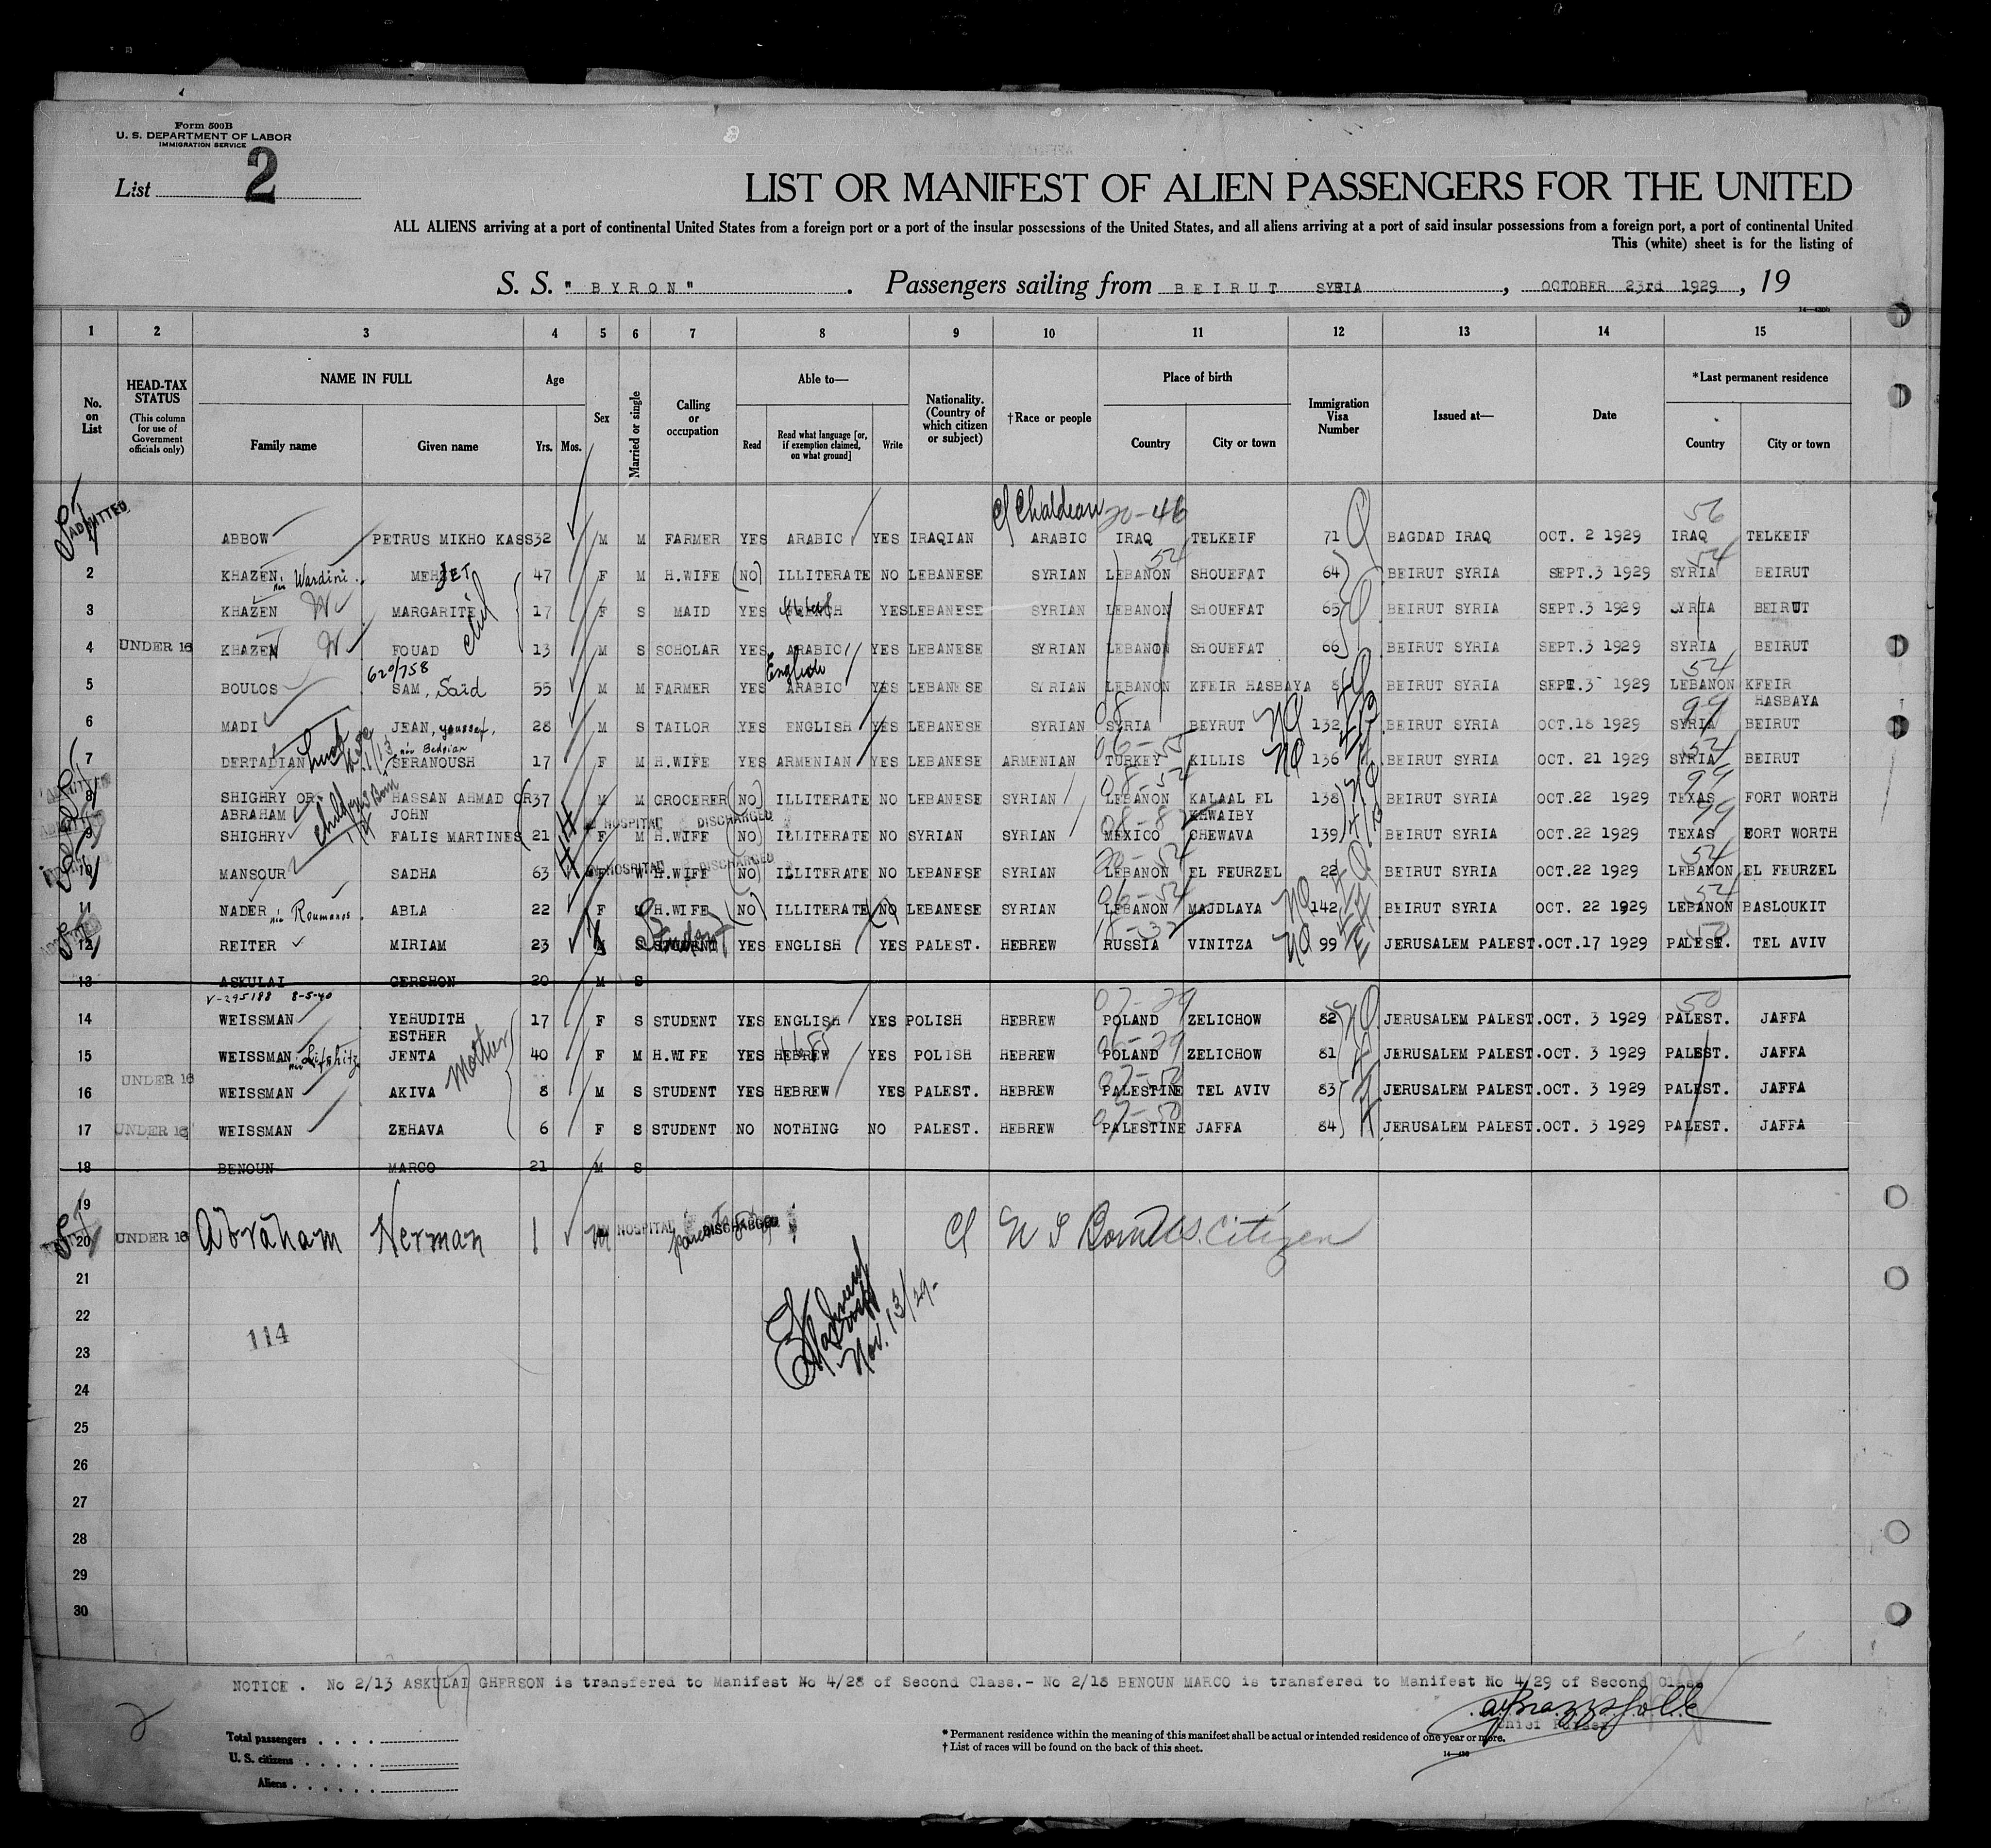 Form 500B
U. S. DEPARTMENT OF LABOR
IMMIGRATION SERVICE
List 2
LIST OR MANIFEST OF ALIEN PASSENGERS FOR THE UNITED
ALL ALIENS arriving at a port of continental United States from a foreign port or a port of the insular possessions of the United States, and all aliens arriving at a port of said insular possessions from a foreign port, a port of continental United
This (white) sheet is for the listing of
S. S. "BYRON". Passengers sailing from BEIRUT SYRIA, OCTOBER 23rd 1929, 19
14—430b
1 2 3 4 5 6 7 8 9 10 11 12 13 14 15
No. on List
HEAD-TAX STATUS (This column for use of Government officials only)
NAME IN FULL Family name Given name
Age Yrs. Mos.
Sex
Married or single
Calling or occupation
Able to— Read Read what language [or, if exemption claimed, on what ground] Write
Nationality. (Country of which citizen or subject)
†Race or people
Place of birth Country City or town
Immigration Visa Number
Issued at—
Date
*Last permanent residence Country City or town
ADMITTED Chaldean 20-46 56
ABBOW PETRUS MIKHO KASS 32 M M FARMER YES ARABIC YES IRAQIAN ARABIC IRAQ TELKEIF 71 BAGDAD IRAQ OCT. 2 1929 IRAQ TELKEIF
54 54
2 KHAZEN, née Wardini. 47 F M H.WIFE (NO) ILLITERATE NO LEBANESE SYRIAN LEBANON SHOUEFAT 64 BEIRUT SYRIA SEPT.3 1929 SYRIA BEIRUT
3 KHAZEN W MARGARITE 17 F S MAID YES YES LEBANESE SYRIAN LEBANON SHOUEFAT 65 BEIRUT SYRIA SEPT.3 1929 SYRIA BEIRUT
4 UNDER 16 KHAZEN W FOUAD 13 M S SCHOLAR YES ARABIC YES LEBANESE SYRIAN LEBANON SHOUEFAT 66 BEIRUT SYRIA SEPT.3 1929 SYRIA BEIRUT
620/758 English 54
5 BOULOS SAM, Said 55 M M FARMER YES ARABIC YES LEBANESE SYRIAN LEBANON KFEIR HASBAYA 8 BEIRUT SYRIA SEPT.3 1929 LEBANON KFEIR HASBAYA
08 99
6 MADI JEAN, youssef, 28 M S TAILOR YES ENGLISH YES LEBANESE SYRIAN SYRIA BEYRUT NQ 132 BEIRUT SYRIA OCT.18 1929 SYRIA BEIRUT
née Bedoian 54
7 DERTADIAN SERANOUSH 17 F M H.WIFE YES ARMENIAN YES LEBANESE ARMENIAN TURKEY KILLIS NQ 136 BEIRUT SYRIA OCT. 21 1929 SYRIA BEIRUT
08-54 99
8 SHIGHRY OR HASSAN AHMAD OR 37 M M GROCERER (NO) ILLITERATE NO LEBANESE SYRIAN LEBANON KALAAL EL 138 BEIRUT SYRIA OCT.22 1929 TEXAS FORT WORTH
ABRAHAM JOHN KHWAIBY
IN HOSPITAL DISCHARGED 99
9 SHIGHRY FALIS MARTINES 21 F M H.WIFE (NO) ILLITERATE NO SYRIAN SYRIAN MEXICO CHEWAVA 139 BEIRUT SYRIA OCT.22 1929 TEXAS FORT WORTH
IN HOSPITAL DISCHARGED 54
10 MANSOUR SADHA 63 F W H.WIFE (NO) ILLITERATE NO LEBANESE SYRIAN LEBANON EL FEURZEL 22 BEIRUT SYRIA OCT.22 1929 LEBANON EL FEURZEL
06-54 54
11 NADER née Roumanos. ABLA 22 F M H.WIFE (NO) ILLITERATE NO LEBANESE SYRIAN LEBANON MAJDLAYA NQ 142 BEIRUT SYRIA OCT. 22 1929 LEBANON BASLOUKIT
Student
12 REITER MIRIAM 23 S YES ENGLISH YES PALEST. HEBREW RUSSIA VINITZA NQ 99 JERUSALEM PALEST. OCT.17 1929 PALEST. TEL AVIV
13 ASKULAI GERSHON 20 M S
V-295188 8-5-40 07-29 50
14 WEISSMAN YEHUDITH 17 F S STUDENT YES ENGLISH YES POLISH HEBREW POLAND ZELICHOW 82 JERUSALEM PALEST. OCT. 3 1929 PALEST. JAFFA
ESTHER
15 WEISSMAN née Lifshitz JENTA Mother 40 F M H.WIFE YES HEBREW YES POLISH HEBREW POLAND ZELICHOW 81 JERUSALEM PALEST. OCT. 3 1929 PALEST. JAFFA
16 UNDER 16 WEISSMAN AKIVA 8 M S STUDENT YES HEBREW YES PALEST. HEBREW PALESTINE TEL AVIV 83 JERUSALEM PALEST. OCT. 3 1929 PALEST. JAFFA
07-50
17 UNDER 16 WEISSMAN ZEHAVA 6 F S STUDENT NO NOTHING NO PALEST. HEBREW PALESTINE JAFFA 84 JERUSALEM PALEST. OCT. 3 1929 PALEST. JAFFA
18 BENOUN MARCO 21 M S
19
20 UNDER 16 Abraham Herman 1 M IN HOSPITAL DISCHARGED Born U.S. Citizen
21
22
114
Nov. 13/29-
23
24
25
26
27
28
29
30
NOTICE . No 2/13 ASKULAI GHERSON is transfered to Manifest No 4/28 of Second Class.- No 2/18 BENOUN MARCO is transfered to Manifest No 4/29 of Second Class
Chief Purser
2
Total passengers
U. S. citizens
Aliens
* Permanent residence within the meaning of this manifest shall be actual or intended residence of one year or more.
† List of races will be found on the back of this sheet.
14—430